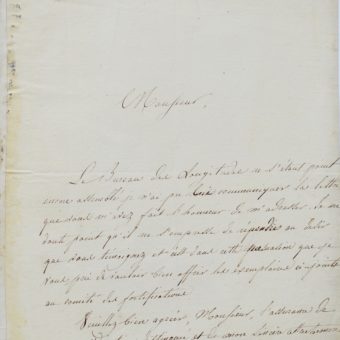 Monsieur,
Le Bureau des Longitudes ne s'étant point
encore assemblé je n'ai pu lui communiquer la lettre
que vous m'avez fait l'honneur de m'adresser. Je ne
doute point qu'il ne s'empresse de répondre au désir
que vous témoignez et c'est dans cette persuasion que je
vous prie de vouloir bien offrir les exemplaires ci-joints
au comité des fortifications.
Veuillez bien agréer, Monsieur, l'assurance de
et